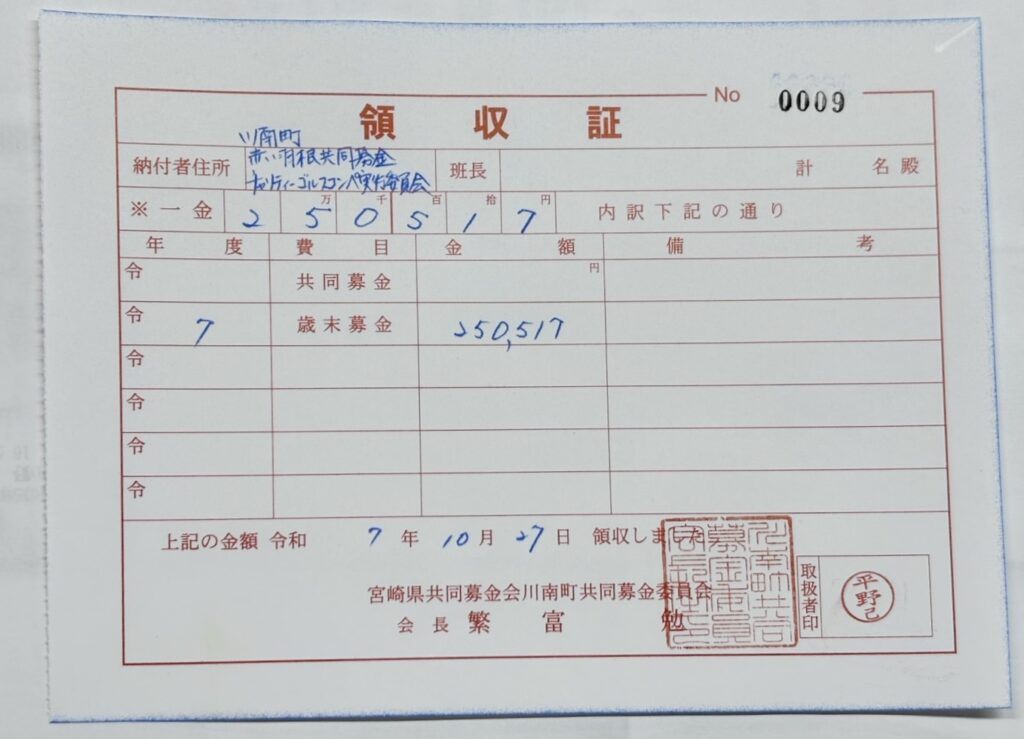 No 0009
領収証
納付者住所 川南町
赤い羽根共同募金
チャリティーゴルフコンペ実行委員会
班長 計 名殿
※一金 2万 5千 0百 5拾 1 7円 内訳下記の通り
年度 費目 金額 備考
令 共同募金 円
令 7 歳末募金 250,517
令
令
令
令
上記の金額 令和 7年 10月 27日 領収しました
宮崎県共同募金会川南町共同募金委員会
会長 繁富 勉
取扱者印 平野